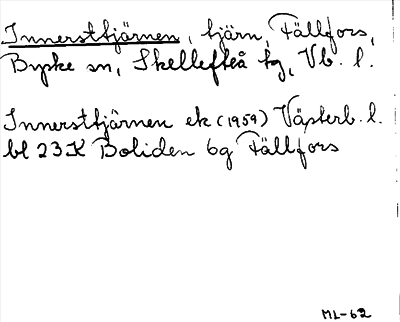 Innersttjärnen, tjärn, Fällfors,
Byske sn, Skellefteå kg, Vb. l.
Innersttjärnen ek (1959) Västerb. l.
bl 23K Boliden 6g Fällfors
ML-62